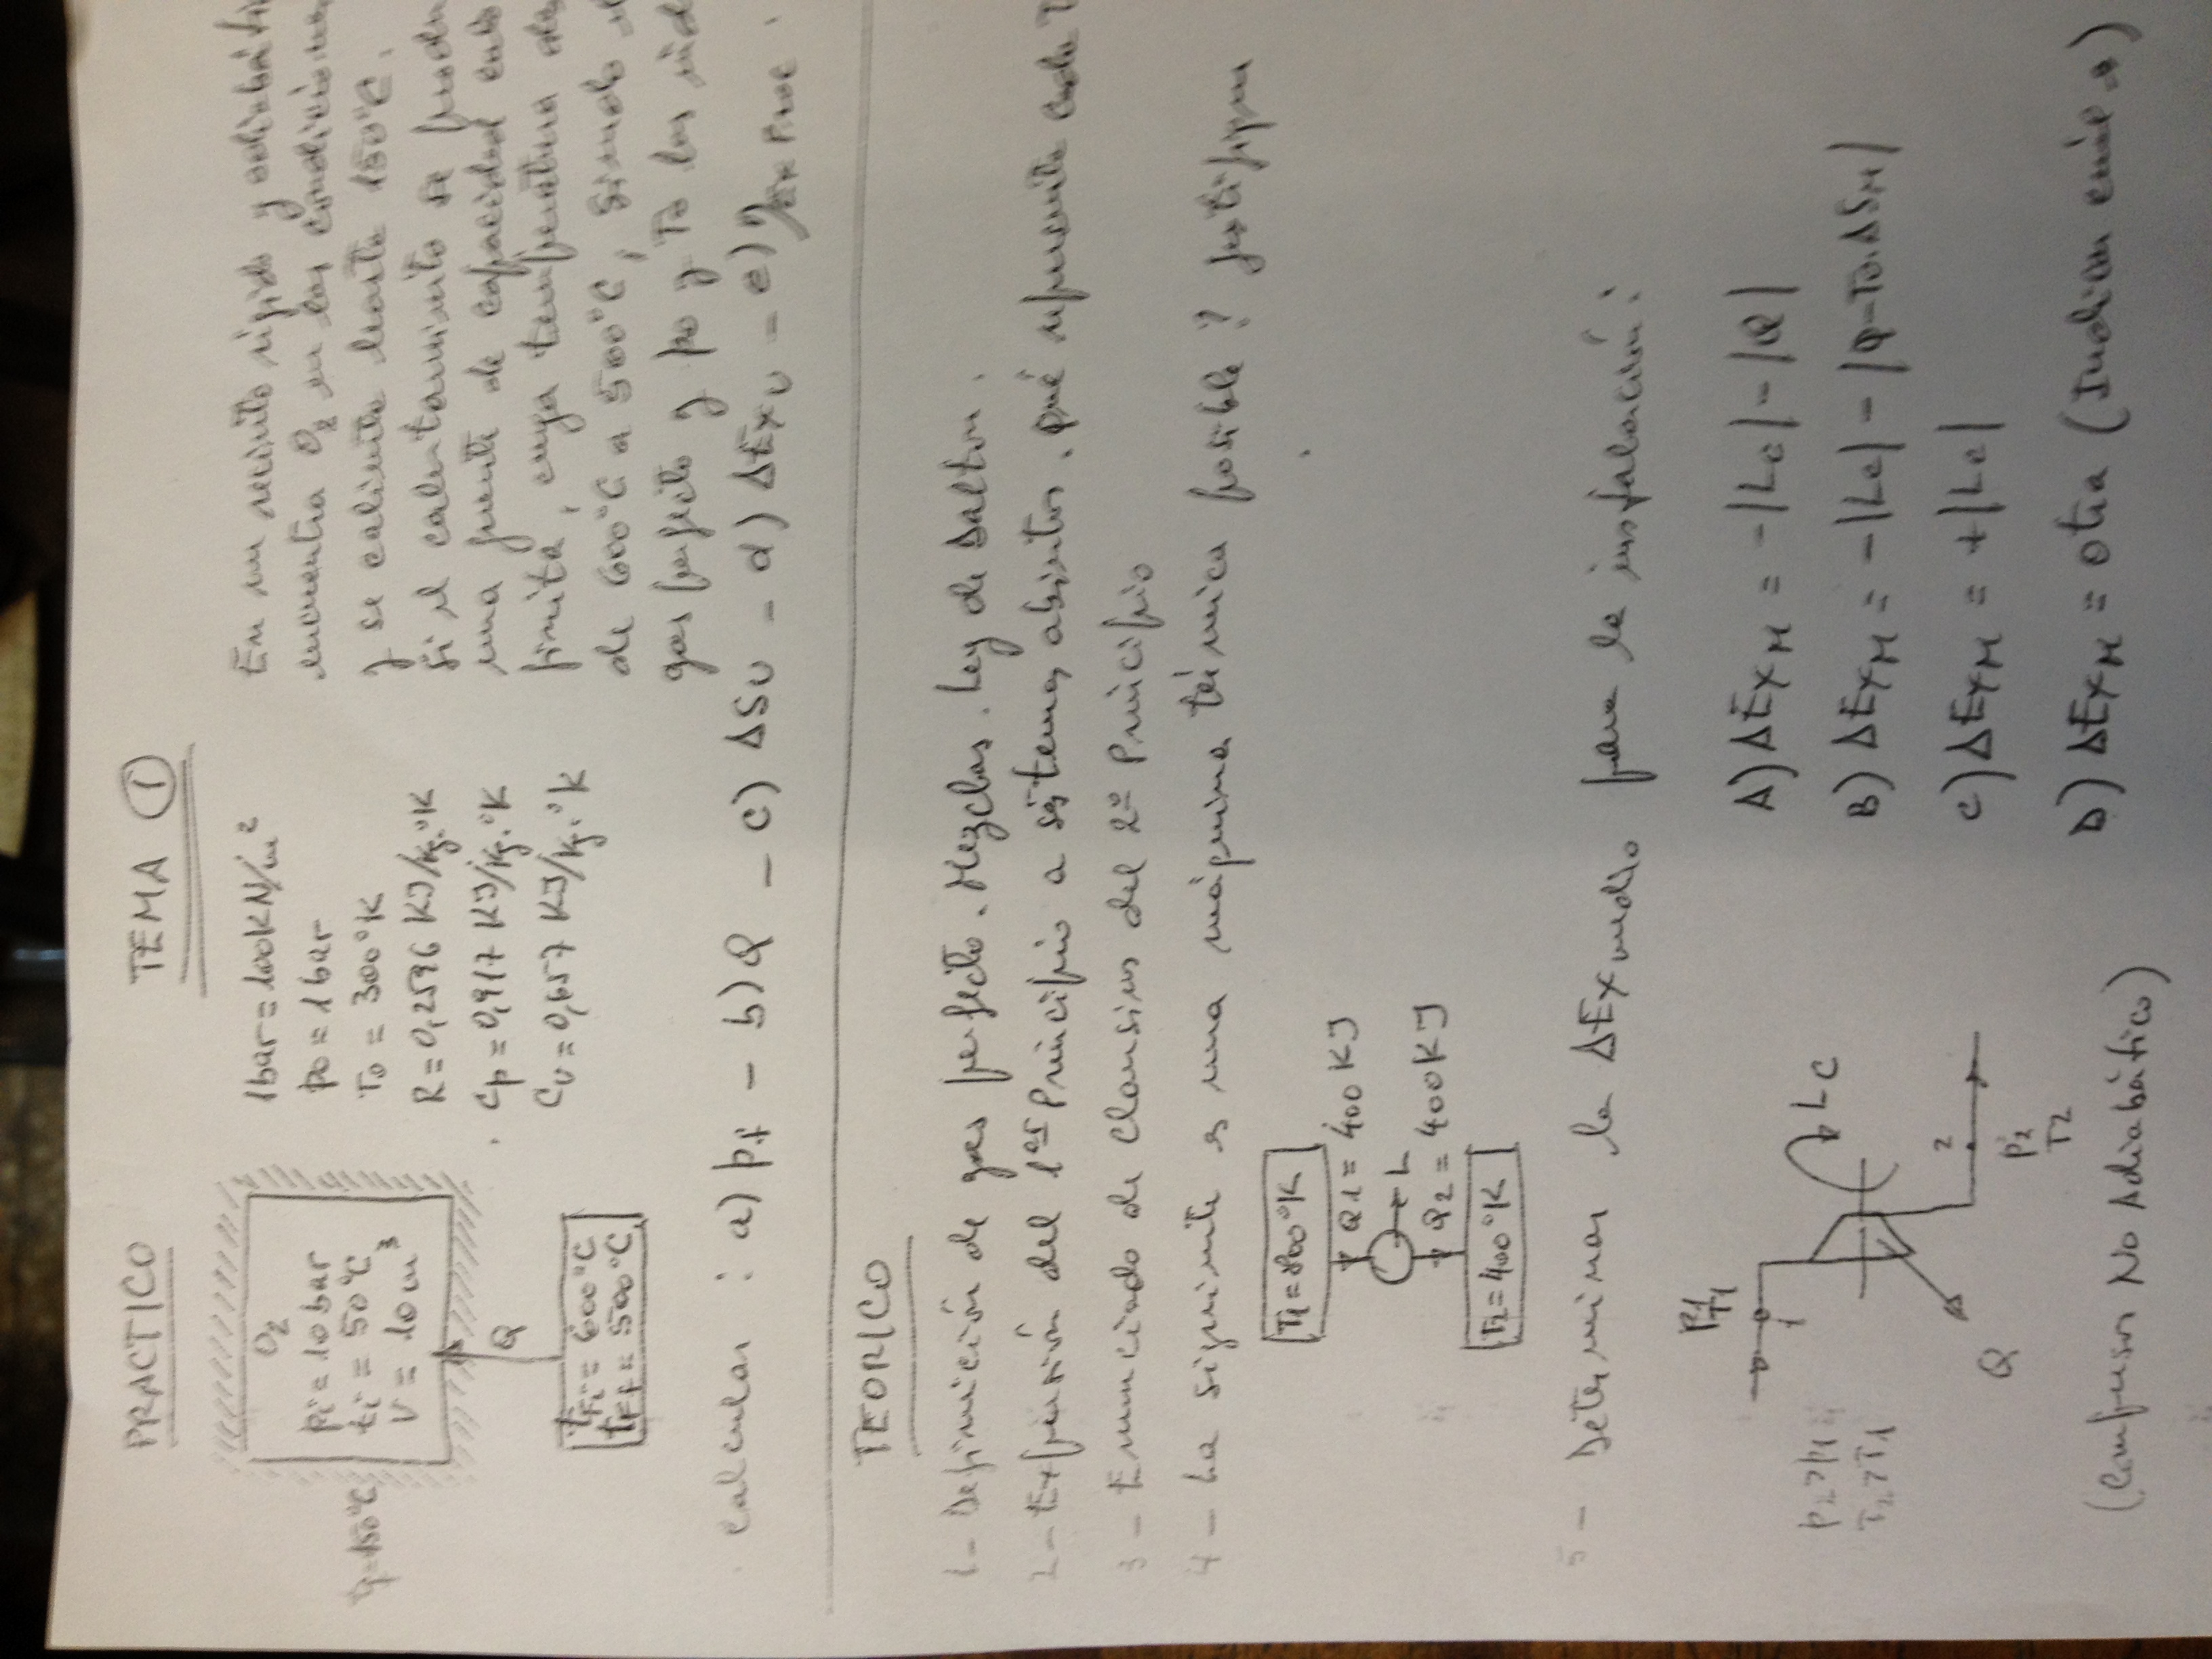 PRACTICO
TEMA 1
O2
pi = 10 bar
ti = 50 °C
V = 10 m3
tf=150°C
Q
tFi = 600 °C
tFf = 500 °C
1bar = 100KN/m2
po = 1 bar
To = 300 °K
R = 0,2596 KJ/Kg.°K
Cp = 0,917 KJ/Kg.°K
Cv = 0,657 KJ/Kg.°K
En un recinto rigido y
encuentra O2 en las
y se calienta hasta 150°C.
Si el calentamiento se
una fuente de capacidad
finita, cuya temperatura
de 600°C a 500°C, siendo
gas perfecto y po y To las
calcular : a) pf - b) Q - c) ΔSU - d) ΔExU - e) ηEx Proc.
TEORICO
1- Definición de gas perfecto. Mezclas. Ley de Dalton.
2- Expresión del 1er Principio a sistemas abiertos. qué representa cada
3- Enunciado de Clausius del 2º Principio
4- La siguiente es una máquina térmica posible? Justifique
T1 = 800°K
Q1 = 400 KJ
L
Q2 = 400 KJ
T2 = 400°K
5- Determinar la ΔEx medio para la instalación:
P1
T1
1
P2>P1
T2>T1
Lc
Q
2
P2
T2
(Compresor No Adiabático)
A) ΔExM = -|Lc| - |Q|
B) ΔExM = -|Lc| - |Q-To.ΔSM|
C) ΔExM = +|Lc|
D) ΔExM = Otra (Indicar cuál)